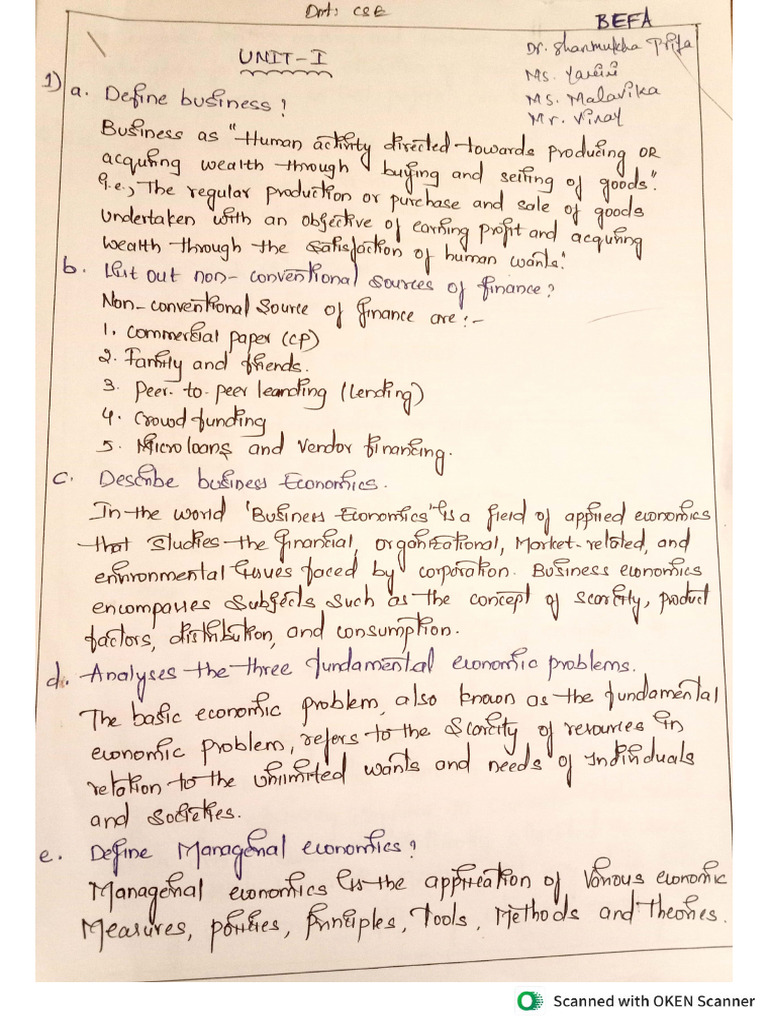 Dnt: CSE
BEFA
UNIT-I
Dr. Shanmukha Priya
Ms.
Ms. Malavika
Mr. Vinay
1) a. Define business?
Business as "Human activity directed towards producing OR
acquring wealth through buying and selling of goods".
i.e., The regular production or purchase and sale of goods
undertaken with an objective of earning profit and acquring
wealth through the satisfaction of human wants."
b. List out non-conventional sources of finance?
Non-conventional Source of finance are:-
1. commercial paper (CP)
2. Family and friends.
3. peer-to-peer leanding (Lending)
4. Crowd funding
5. Micro loans and Vendor financing.
c. Describe business Economics.
In the world 'Business Economics' is a field of applied economics
that studies the financial, organizational, Market-related, and
environmental issues faced by corporation. Business economics
encompasses subjects such as the concept of scarcity, product
factors, distribution, and consumption.
d. Analyses the three fundamental economic problems.
The basic economic problem, also known as the fundamental
economic problem, refers to the scarcity of resources in
relation to the unlimited wants and needs of individuals
and societies.
e. Define Managerial economics?
Managerial economics is the application of Various economic
Measures, policies, principles, Tools, Methods and theories.
Scanned with OKEN Scanner